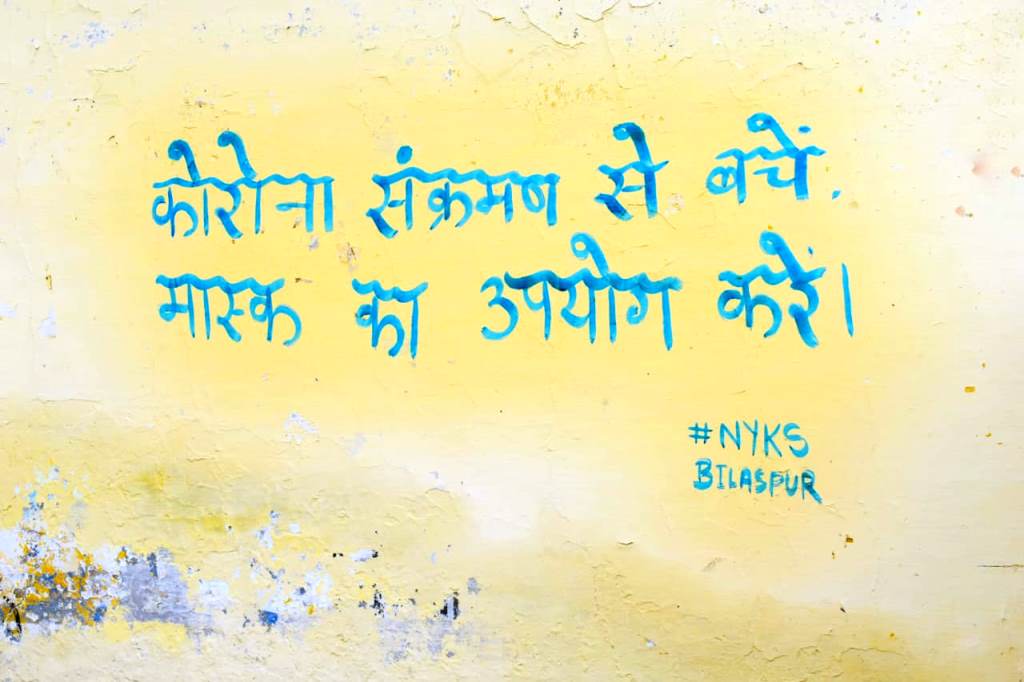 कोरोना संक्रमण से बचें.
मास्क का उपयोग करें।
#NYKS
BILASPUR